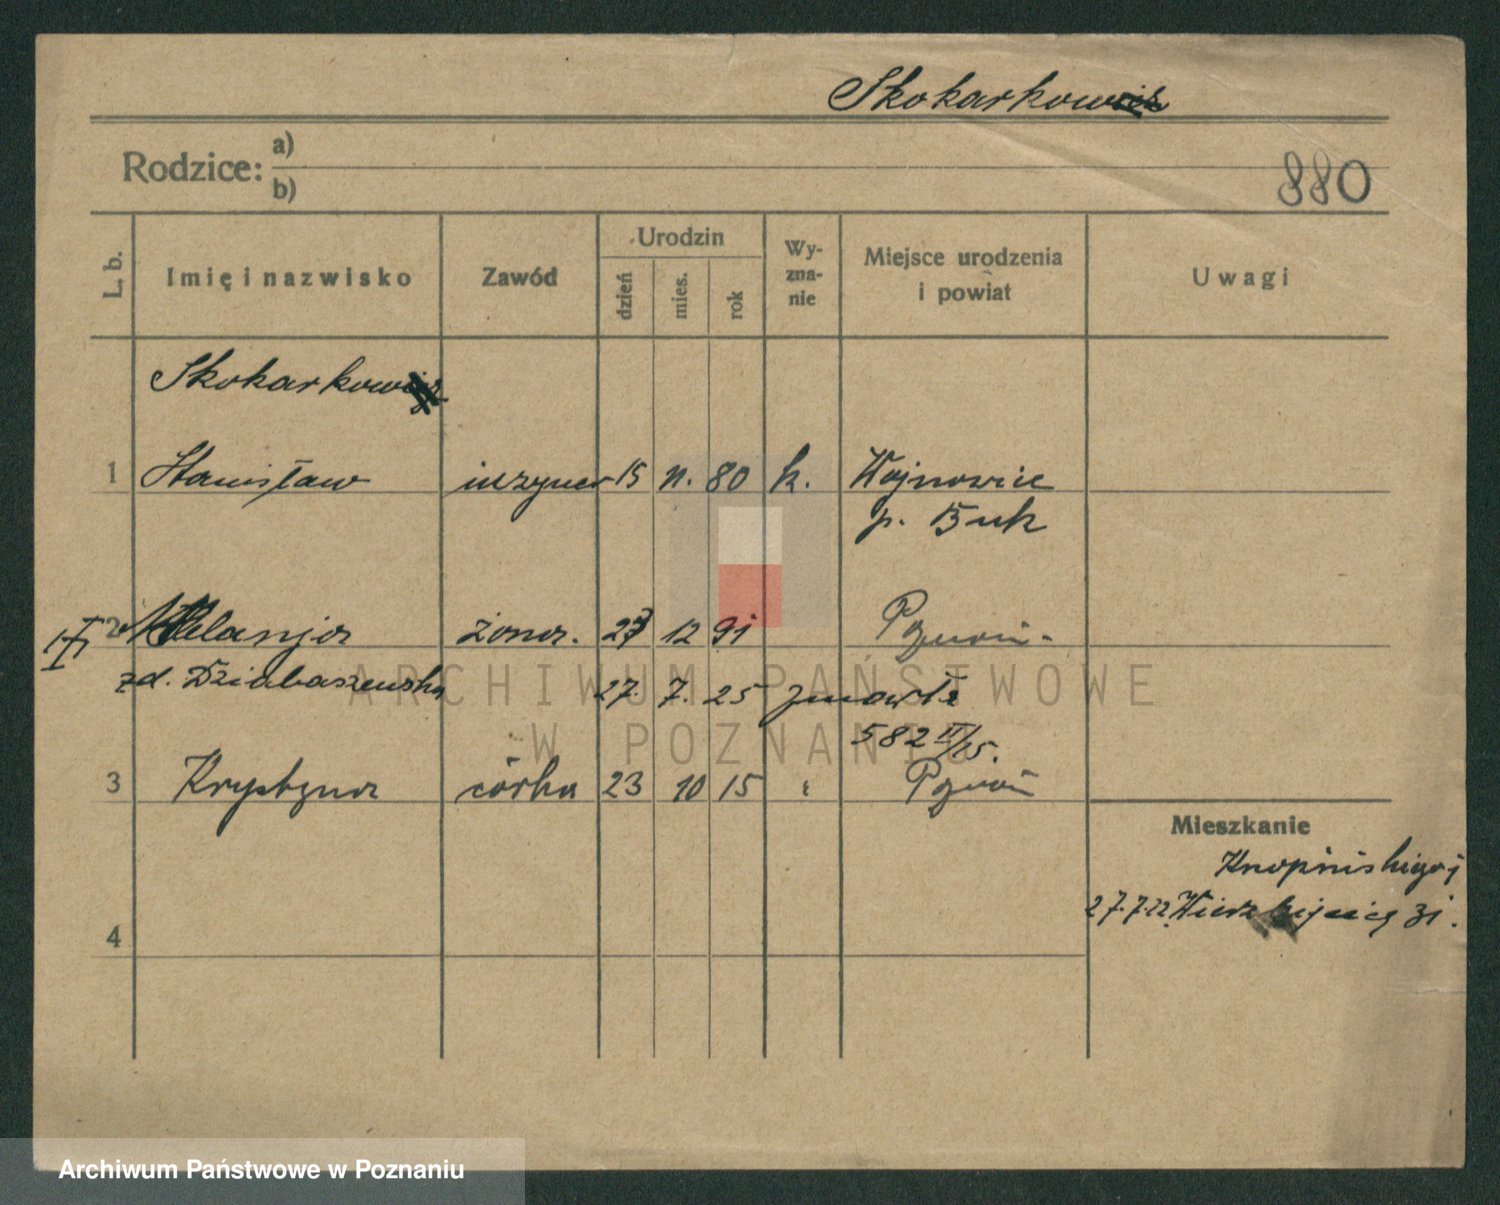 Skokarkowicz
Rodzice: a)
b)
880
L. b.
Imię i nazwisko
Zawód
Urodzin
dzień
mies.
rok
Wy-
zna-
nie
Miejsce urodzenia
i powiat
Uwagi
Skokarkowicz
1 Stanisław inżynier 15 11. 80 k. Wojnowice
p. Buk
2 Melanja żona. 23 12 91 Poznań.
zd. Dziabaszewska 27. 7. 25 zmarła
582 II/25.
3 Krystyna córka 23 10 15 Poznań
Mieszkanie
Knapińskiego 1
27.7.22 Wierzbięcice 31.
4
ARCHIWUM PAŃSTWOWE
W POZNANIU
Archiwum Państwowe w Poznaniu